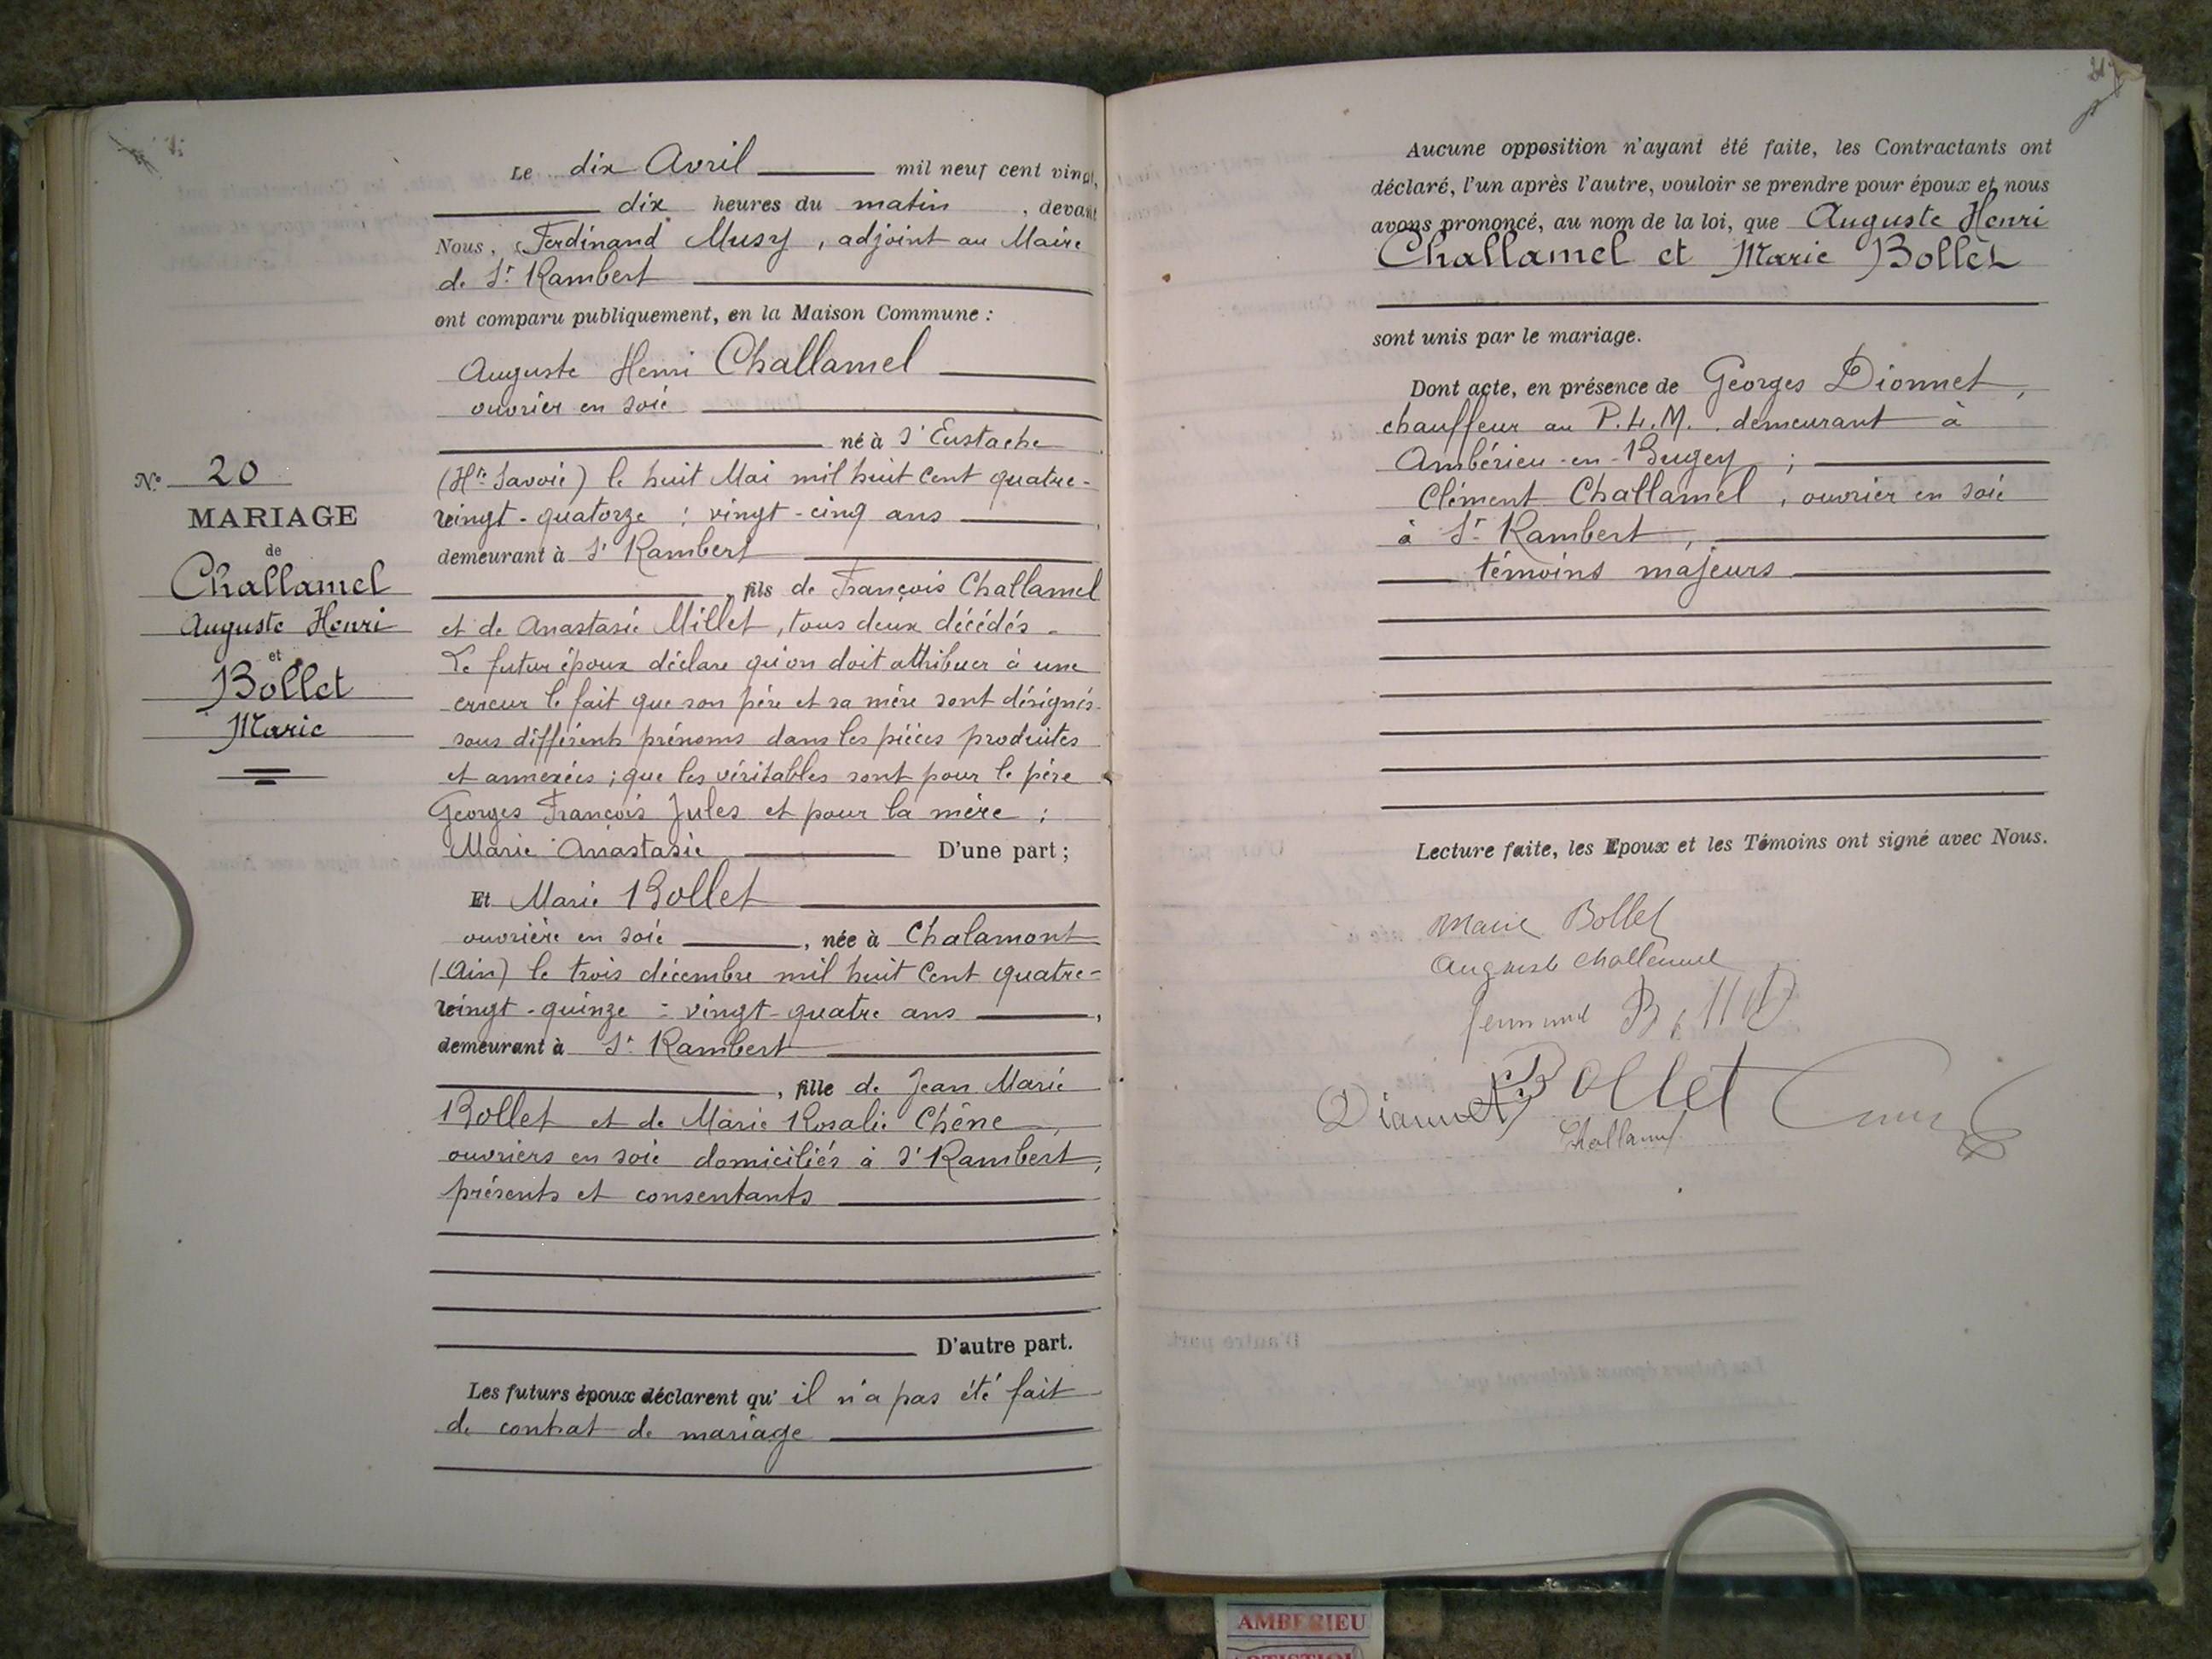 Le dix Avril mil neuf cent vingt,
dix heures du matin, devant
Nous, Ferdinand Musy, adjoint au Maire
de St Rambert
ont comparu publiquement, en la Maison Commune :
Auguste Henri Challamel
ouvrier en soie
né à St Eustache
(Hte Savoie) le huit Mai mil huit cent quatre-
vingt-quatorze : vingt-cinq ans
demeurant à St Rambert
, fils de François Challamel
et de Anastasie Millet, tous deux décédés.
Le futur époux déclare qu'on doit attribuer à une
erreur le fait que son père et sa mère sont désignés
sous différents prénoms dans les pièces produites
et annexées ; que les véritables sont pour le père
Georges François Jules et pour la mère :
Marie Anastasie D'une part ;
Et Marie Bollet
ouvrière en soie, née à Chalamont
(Ain) le trois décembre mil huit cent quatre-
vingt-quinze : vingt-quatre ans,
demeurant à St Rambert
, fille de Jean Marie
Bollet et de Marie Rosalie Chêne,
ouvriers en soie domiciliés à St Rambert,
présents et consentants
D'autre part.
Les futurs époux déclarent qu'il n'a pas été fait
de contrat de mariage
No 20
MARIAGE
de
Challamel
Auguste Henri
et
Bollet
Marie
21
Aucune opposition n'ayant été faite, les Contractants ont
déclaré, l'un après l'autre, vouloir se prendre pour époux et nous
avons prononcé, au nom de la loi, que Auguste Henri
Challamel et Marie Bollet
sont unis par le mariage.
Dont acte, en présence de Georges Dionnet,
chauffeur au P.L.M. demeurant à
Ambérieu-en-Bugey ;
Clément Challamel, ouvrier en soie
à St Rambert,
témoins majeurs
Lecture faite, les Epoux et les Témoins ont signé avec Nous.
Marie Bollet
Auguste Challamel
Bollet
Dionnet
Challamel
AMBERIEU